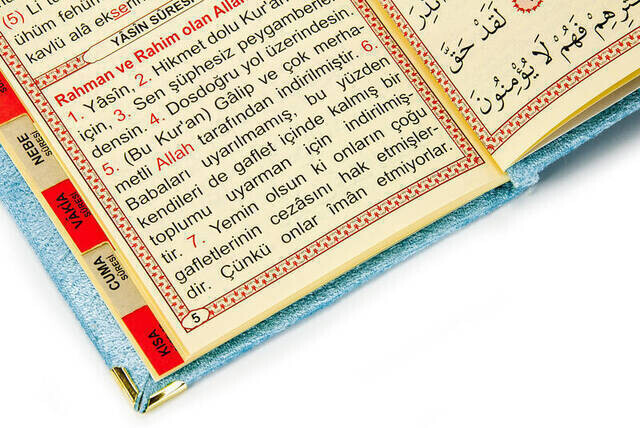 (5) Li t
ühüm fehüm
kavlü alâ ekserih
YÂSİN SÛRESİ
Rahman ve Rahim olan Allah
1. Yâsîn, 2. Hikmet dolu Kur'an
için, 3. Sen şüphesiz peygamberler-
densin. 4. Dosdoğru yol üzerindesin.
5. (Bu Kur'an) Gâlip ve çok merha-
metli Allah tarafından indirilmiştir. 6.
Babaları uyarılmamış, bu yüzden
kendileri de gaflet içinde kalmış bir
toplumu uyarman için indirilmiş-
tir. 7. Yemin olsun ki onların çoğu
gafletlerinin cezâsını hak etmişler-
dir. Çünkü onlar imân etmiyorlar.
5
NEBE
SÛRESİ
VÂKIA
SÛRESİ
CUMA
SÛRESİ
KISA
لَقَدْ حَقَّ
فَهُمْ لَا يُؤْمِنُونَ